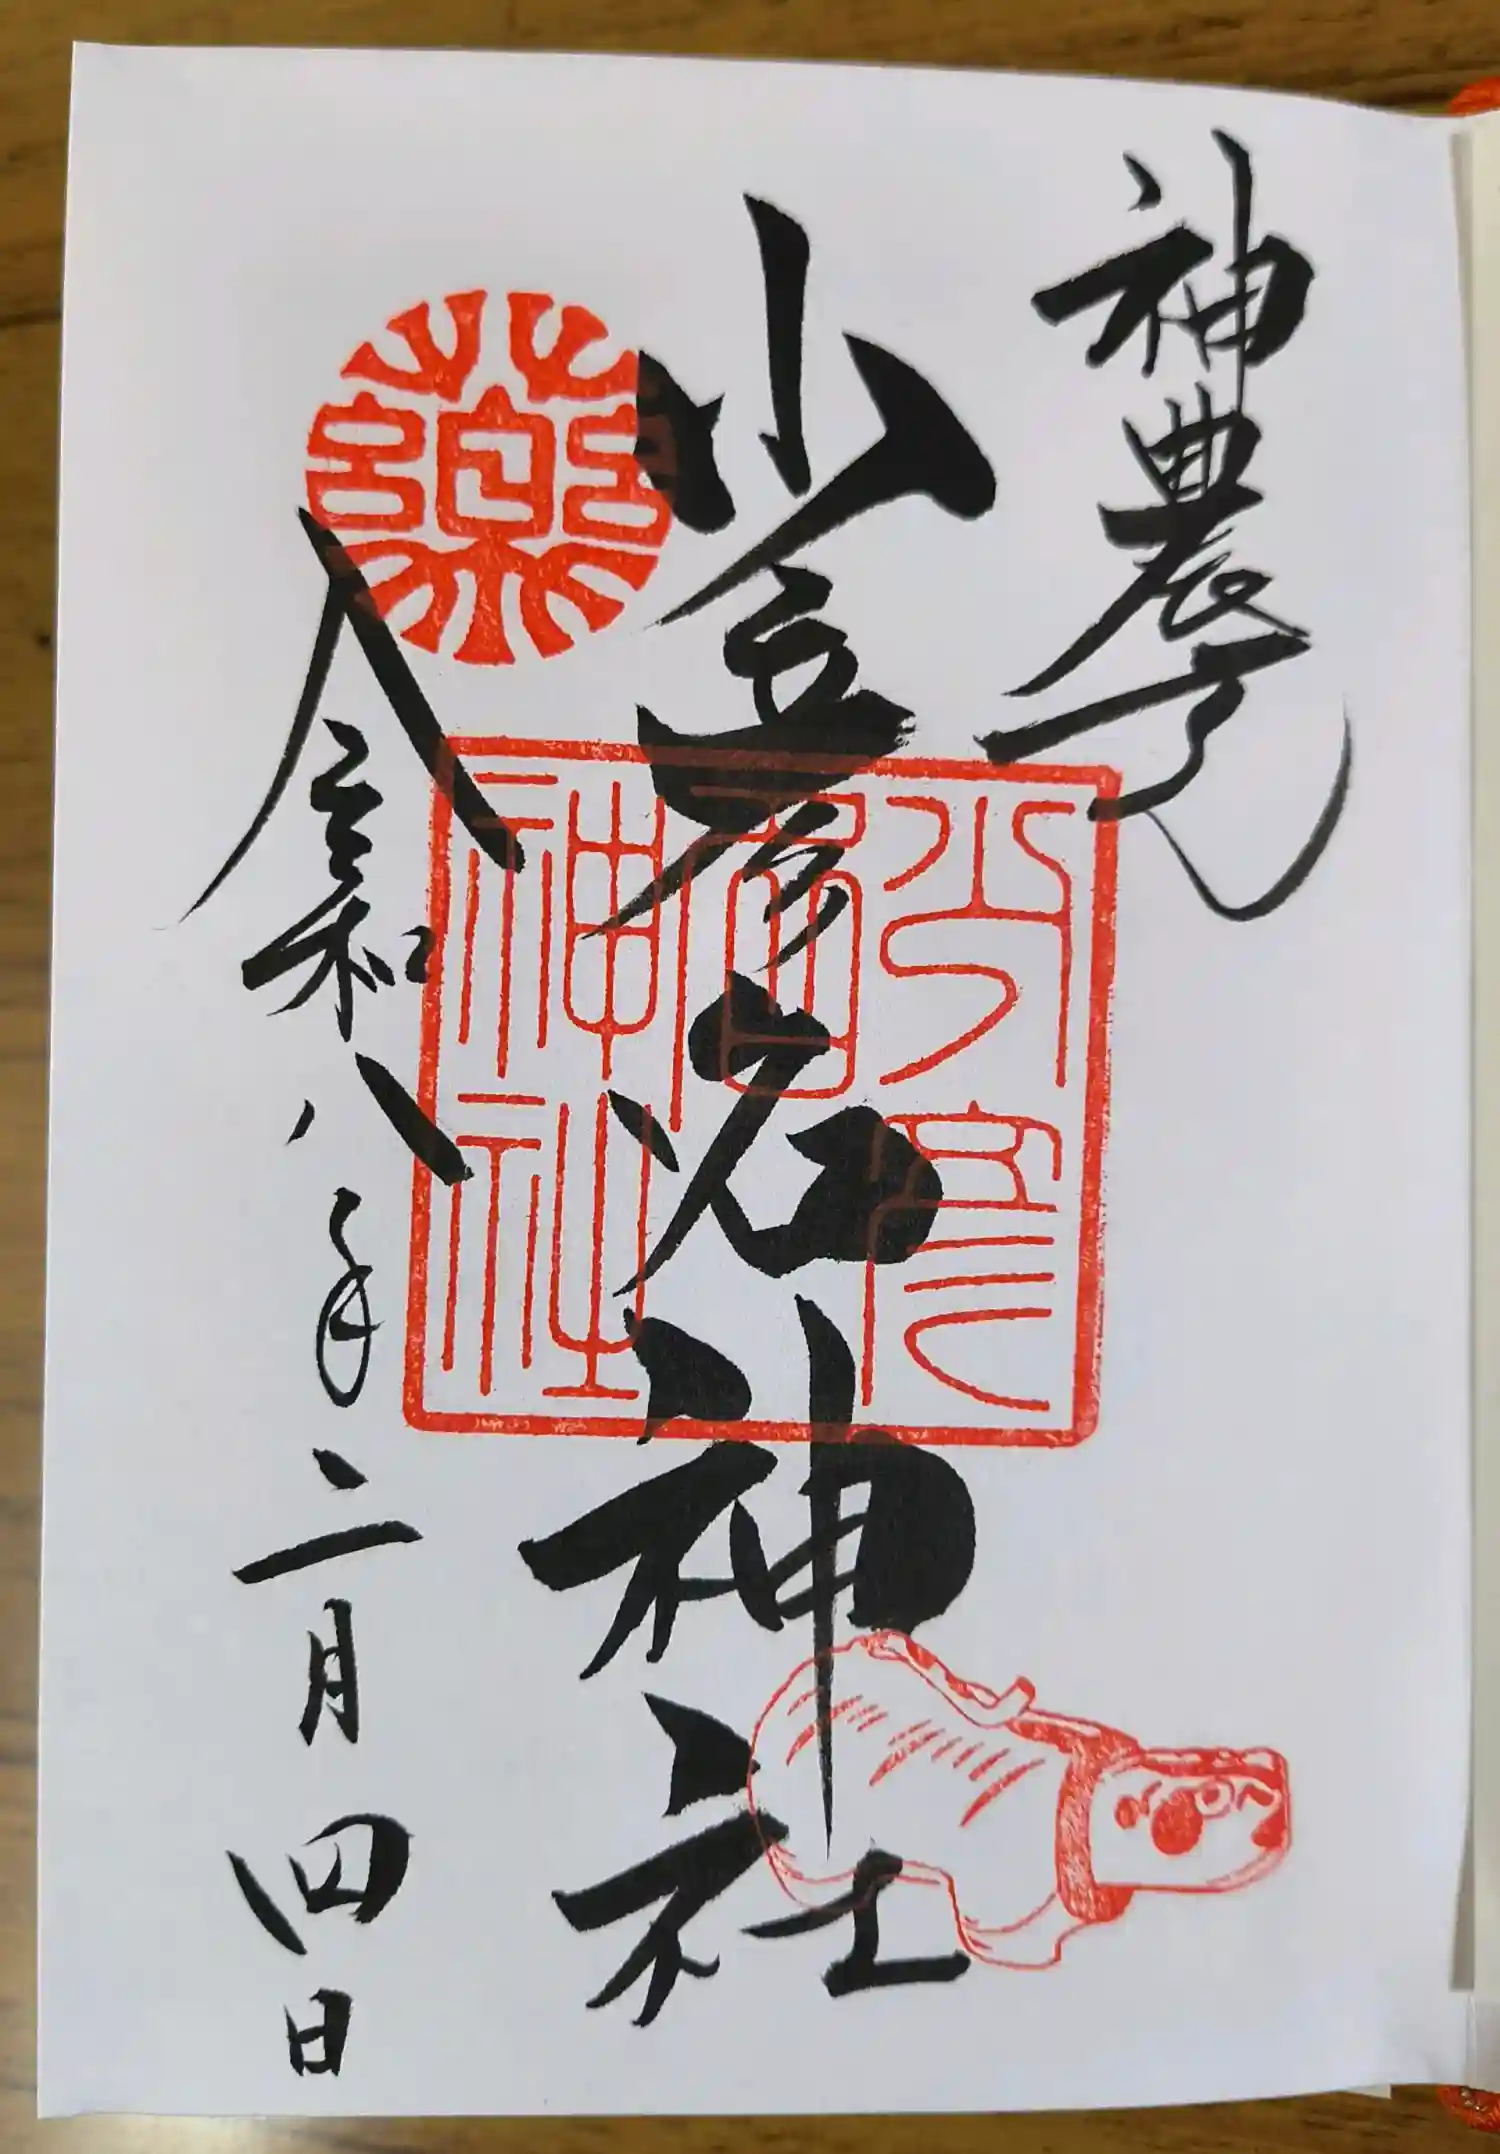 神農
少彦名神社
令和八年二月四日
薬
少彦
名
神社